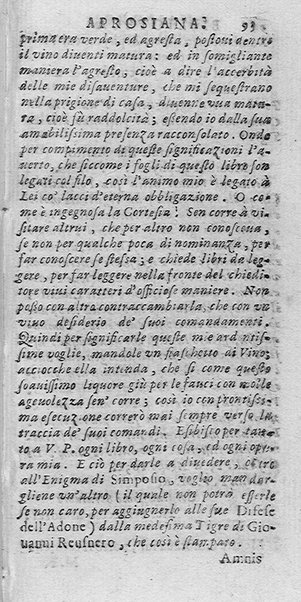 APROSIANA. 93
prima era verde, ed agresta, postovi dentro
il vino diventi matura: ed in somigliante
maniera l'agresto, cioè a dire l'accerbità
delle mie disaventure, che mi sequestrano
nella prigione di casa, divenne vua matu-
ra, cioè fù raddolcità; essendo io dalla sua
amabilissima presenza racconsolato. Onde
per compimento di queste significazioni l'a-
uerto, che siccome i fogli di questo libro son
legati col filo, così l'animo mio è legato à
Lei co' lacci d'eterna obbligazione. O co-
me è ingegnosa la Cortesia! Sen corre à vi-
sitare altrui, che per altro non conosceua,
se non per qualche poca di nominanza, per
far conoscere se stessa; e chiede libri da leg-
gere, per far leggere nella fronte del chiedi-
tore viui caratteri d'officiose maniere. Non
posso con altro contraccambiarla, che con vn
viuo desiderio de' suoi comandamenti.
Quindi per significarle queste mie ardentis-
sime voglie, mandole vn fiaschetto di Vino;
acciocche ella intenda, che si come questo
soauissimo liquore giù per le fauci con molle
ageuolezza sen' corre; così io con prontissi-
ma esecuzione correrò mai sempre verso la
traccia de' suoi comandi. Esibisco per tan-
to a V. P. ogni libro, ogni cosa, ed ogni ope-
ra mia. E ciò per darle a diuedere, oltre
all'Enigma di Simposio, voglio man dar-
gliene vn'altro (il quale non potrà esserle
se non caro, per aggiugnerlo alle sue Difese
dell'Adone) dalla medesima Tigre di Gio-
uanni Reusnero, che così è stampato.
Amnis